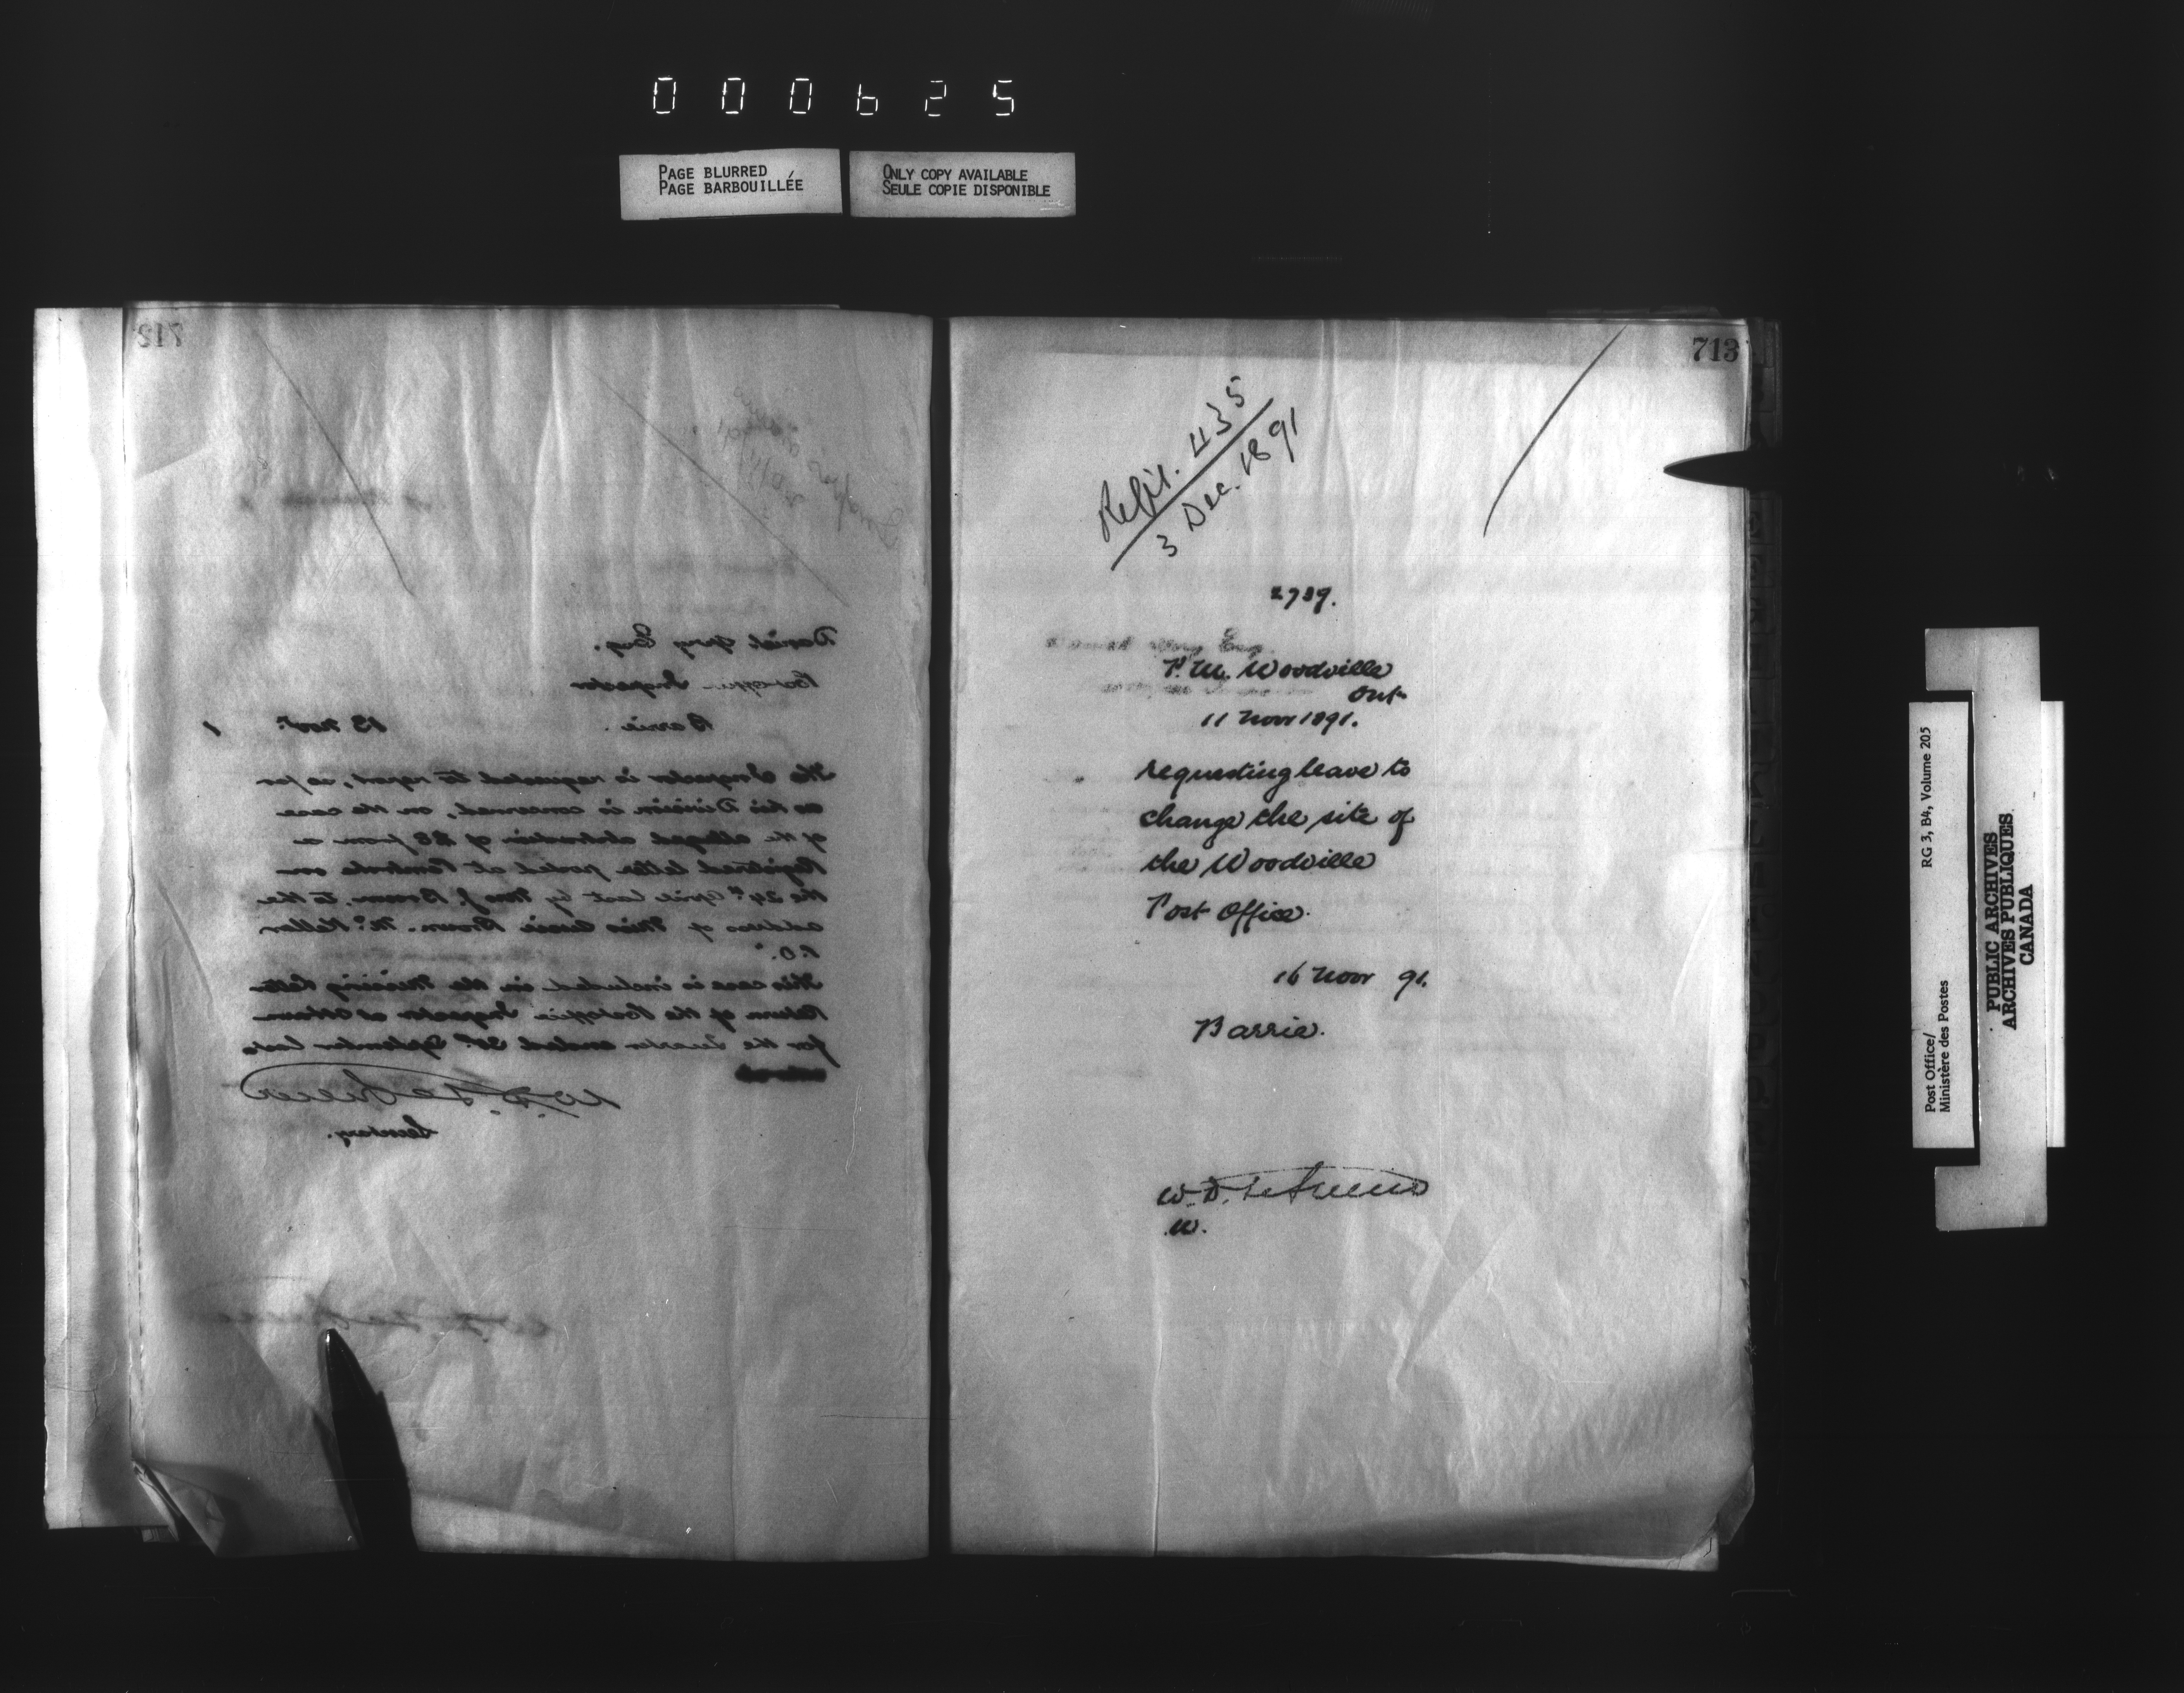 000625
PAGE BLURRED
PAGE BARBOUILLÉE
ONLY COPY AVAILABLE
SEULE COPIE DISPONIBLE
712
Daniel Spry Esq.
Postoffice Inspector
Barrie. 13 Nov. 1
The Inspector is requested to report, as far
as his Division is concerned, on the case
of the alleged abstraction of $8 from a
Registered letter posted at Pembroke on
the 24th April last by Mrs J. Brown, to the
address of Miss Brown. McKellar
P.O.
This case is included in the Missing Letter
Return of the Postoffice Inspector at Ottawa
for the Quarter ended 30th September last
W.D. LeSueur
Secretary.
713
435
3 Dec. 1891
2739.
P.M. Woodville
Ont
11 Novr 1891.
requesting leave to
change the site of
the Woodville
Post Office.
16 Novr 91.
Barrie.
W.D. LeSueur
W.
RG 3, B4, Volume 205
Post Office/
Ministère des Postes
PUBLIC ARCHIVES
ARCHIVES PUBLIQUES
CANADA